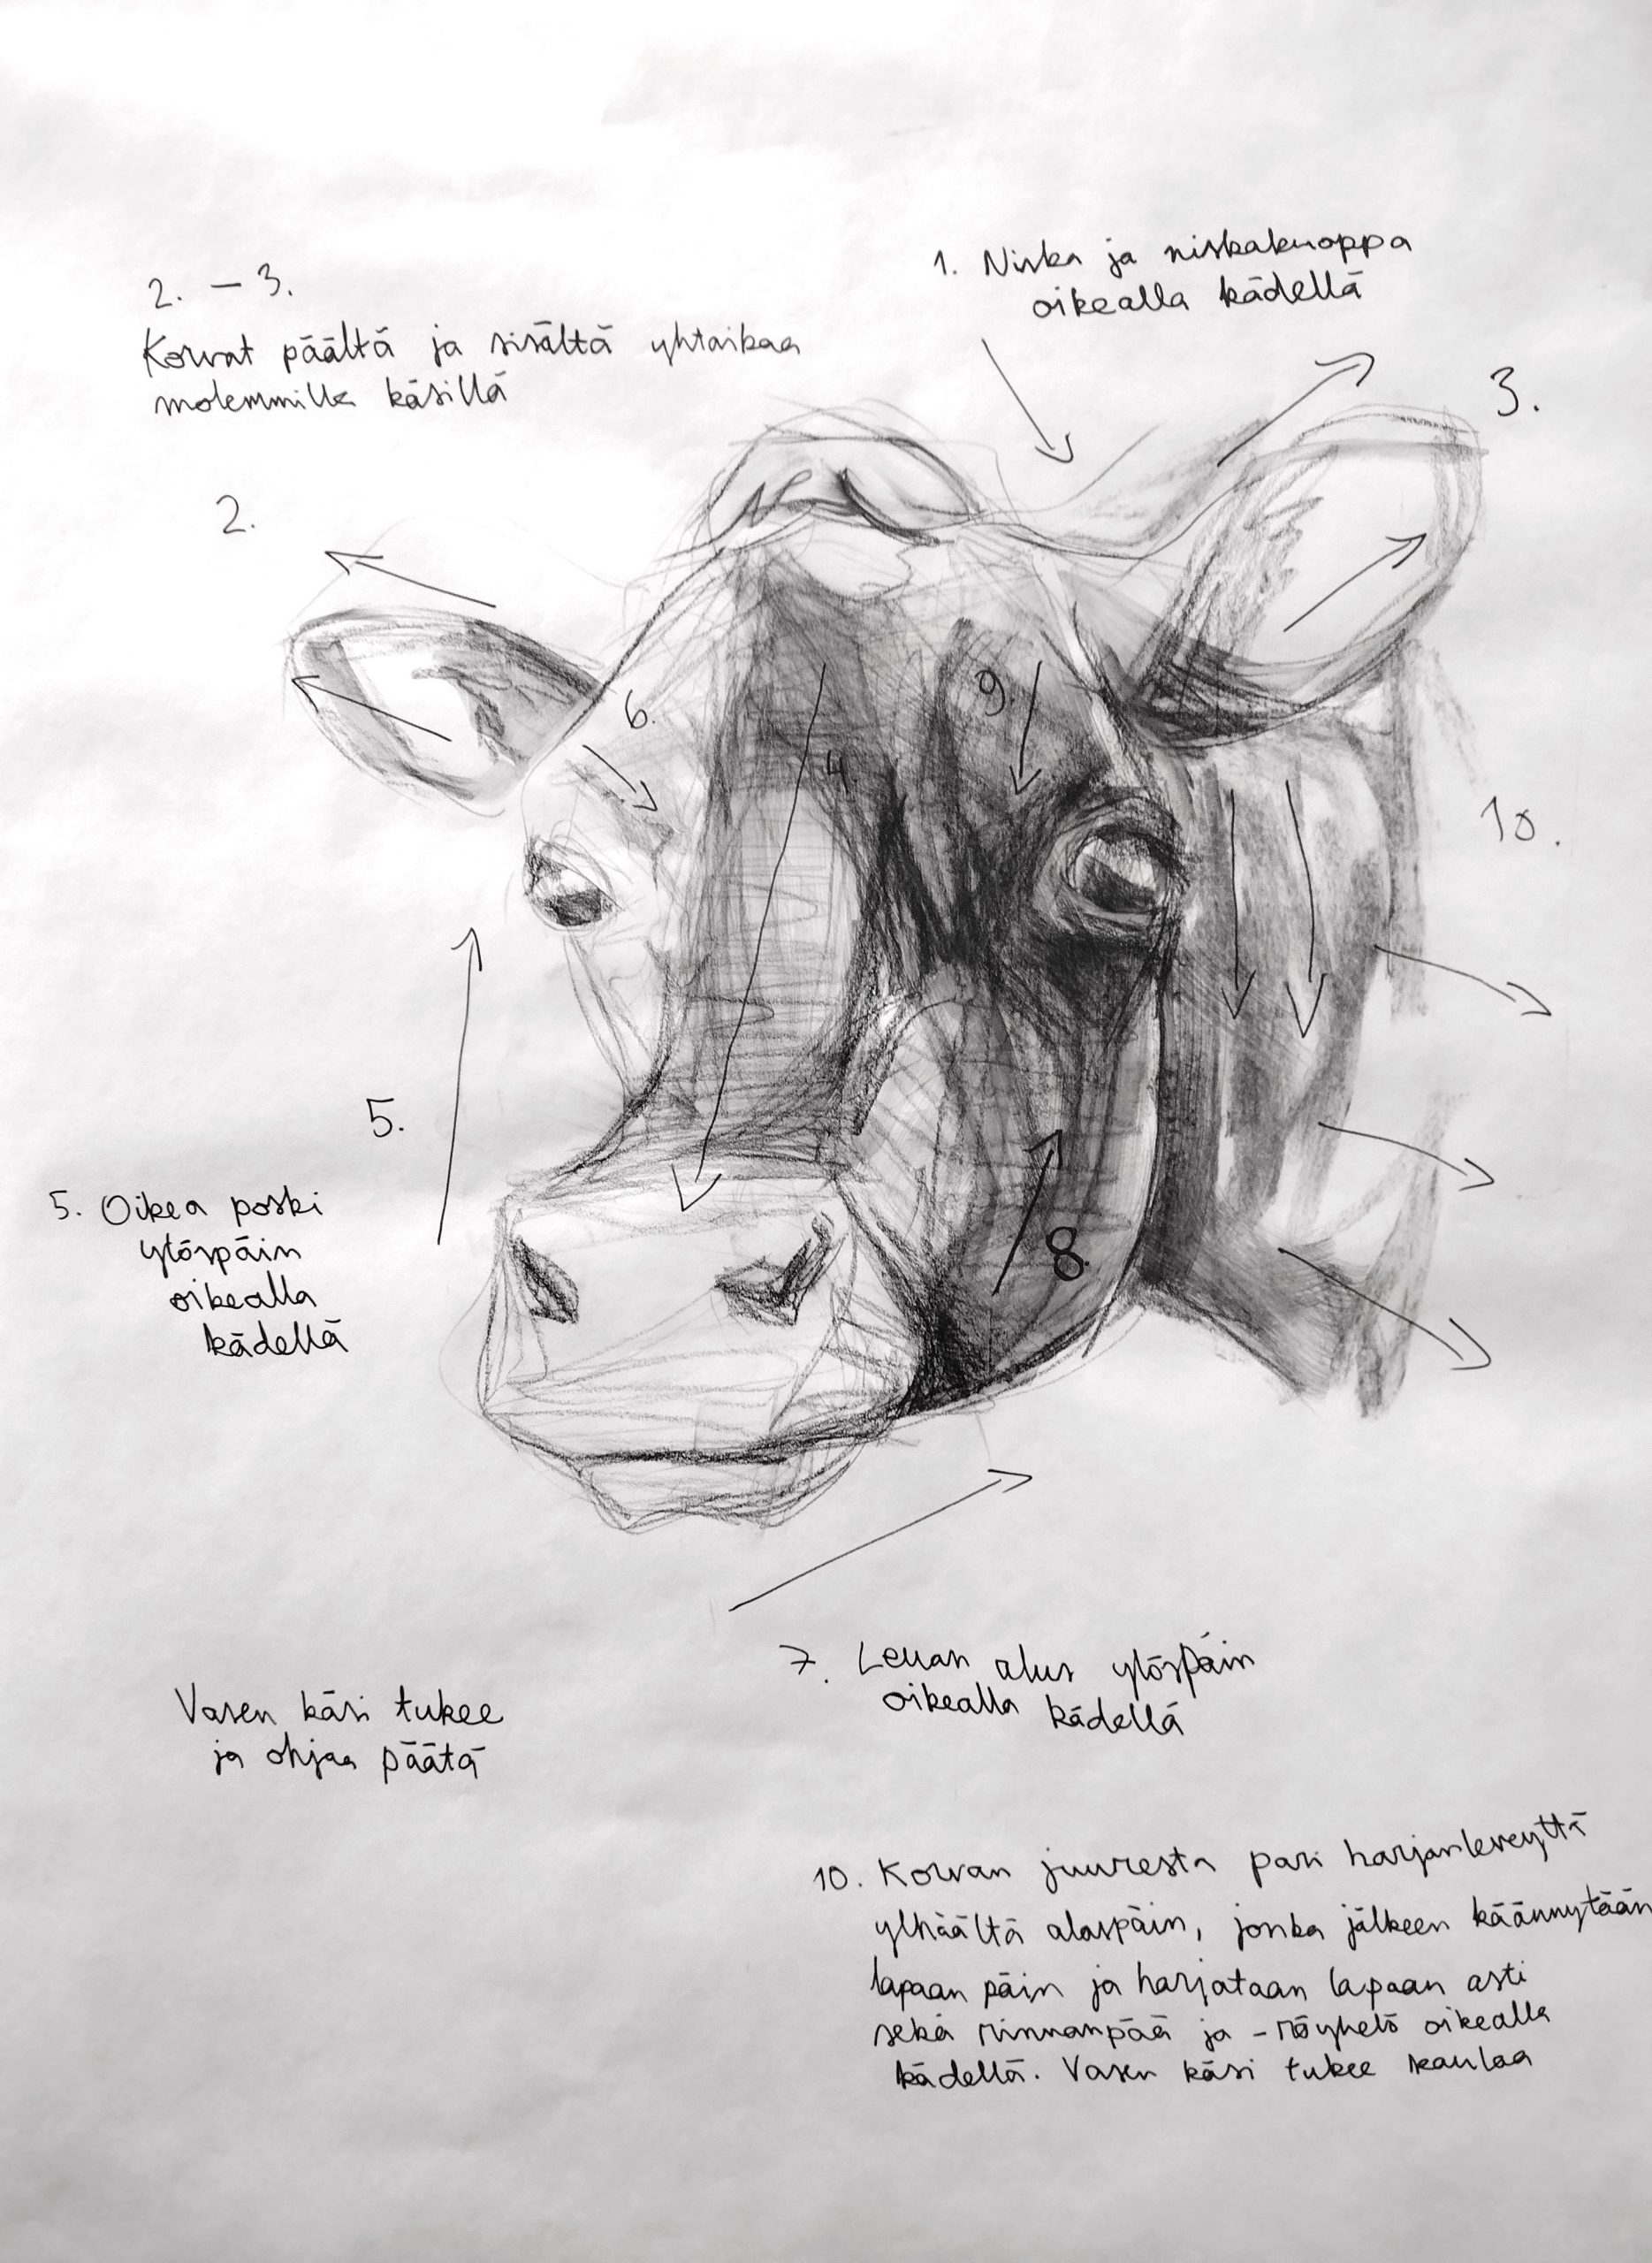 1. Niska ja niskakuoppa
oikealla kädellä
2. – 3.
Korvat päältä ja sisältä yhtaikaa
molemmilla käsillä
3.
2.
6.
9.
4.
10.
5.
5. Oikea poski
ylöspäin
oikealla
kädellä
8.
7. Leuan alus ylöspäin
oikealla kädellä
Vasen käsi tukee
ja ohjaa päätä
10. Korvan juuresta pari harjanleveyttä
ylhäältä alaspäin, jonka jälkeen käännytään
lapaan päin ja harjataan lapaan asti
sekä rinnanpää ja -röyhelö oikealla
kädellä. Vasen käsi tukee kaulaa